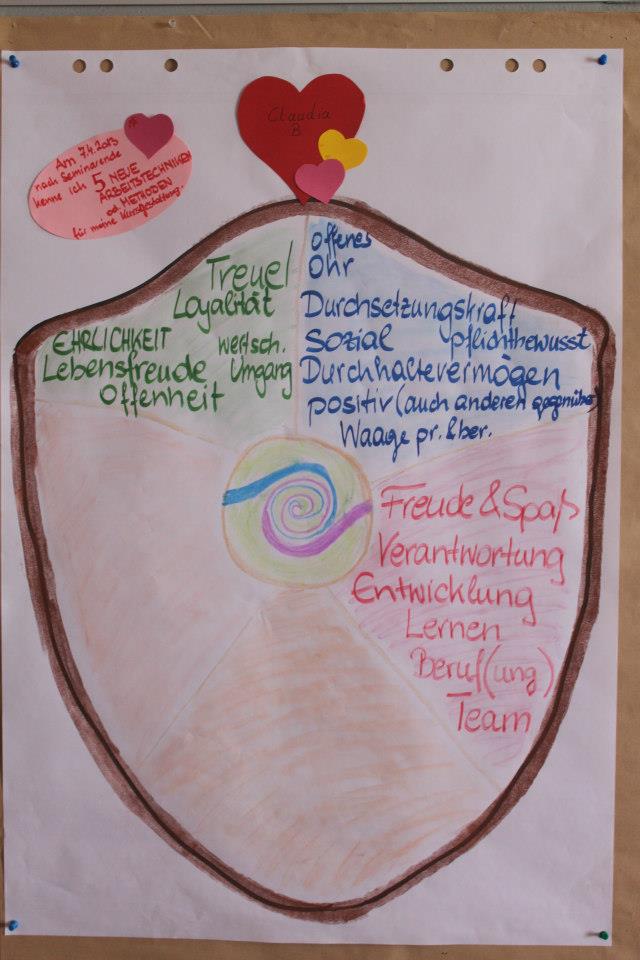 Claudia
B
Am 7.4.2013
nach Seminarende
kenne ich 5 NEUE
ARBEITSTECHNIKEN
od. METHODEN
für meine Kursgestaltung.
Treue
Loyalität
EHRLICHKEIT wertsch.
Lebensfreude Umgang
Offenheit
Offenes
Ohr
Durchsetzungskraft
Sozial pflichtbewusst
Durchhaltevermögen
positiv (auch anderen gegenüber)
Waage pr. & ber.
Freude & Spaß
Verantwortung
Entwicklung
Lernen
Beruf(ung)
Team